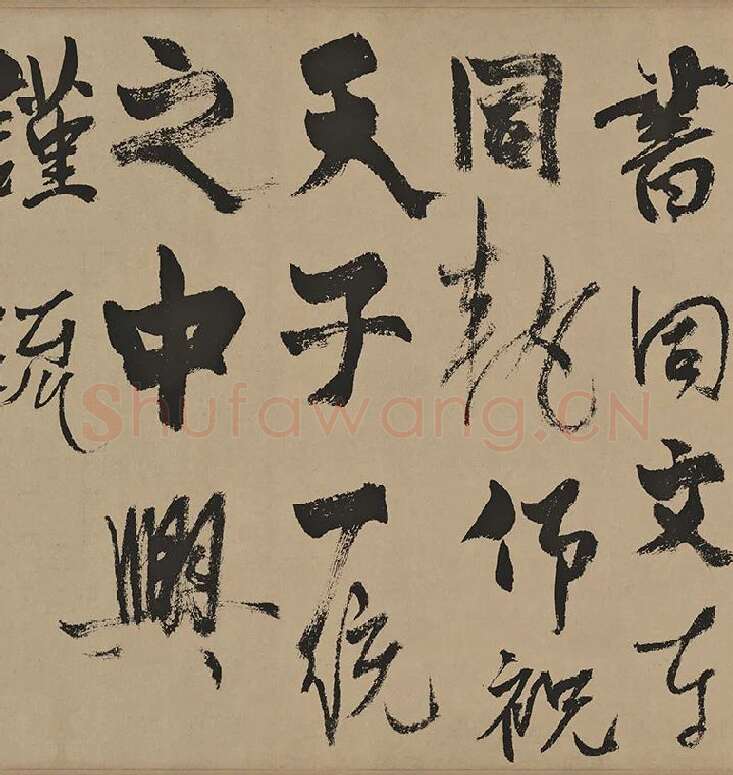 書同文車
同軌仰祝
天子一統
之中興
謹疏
Shufawang.CN